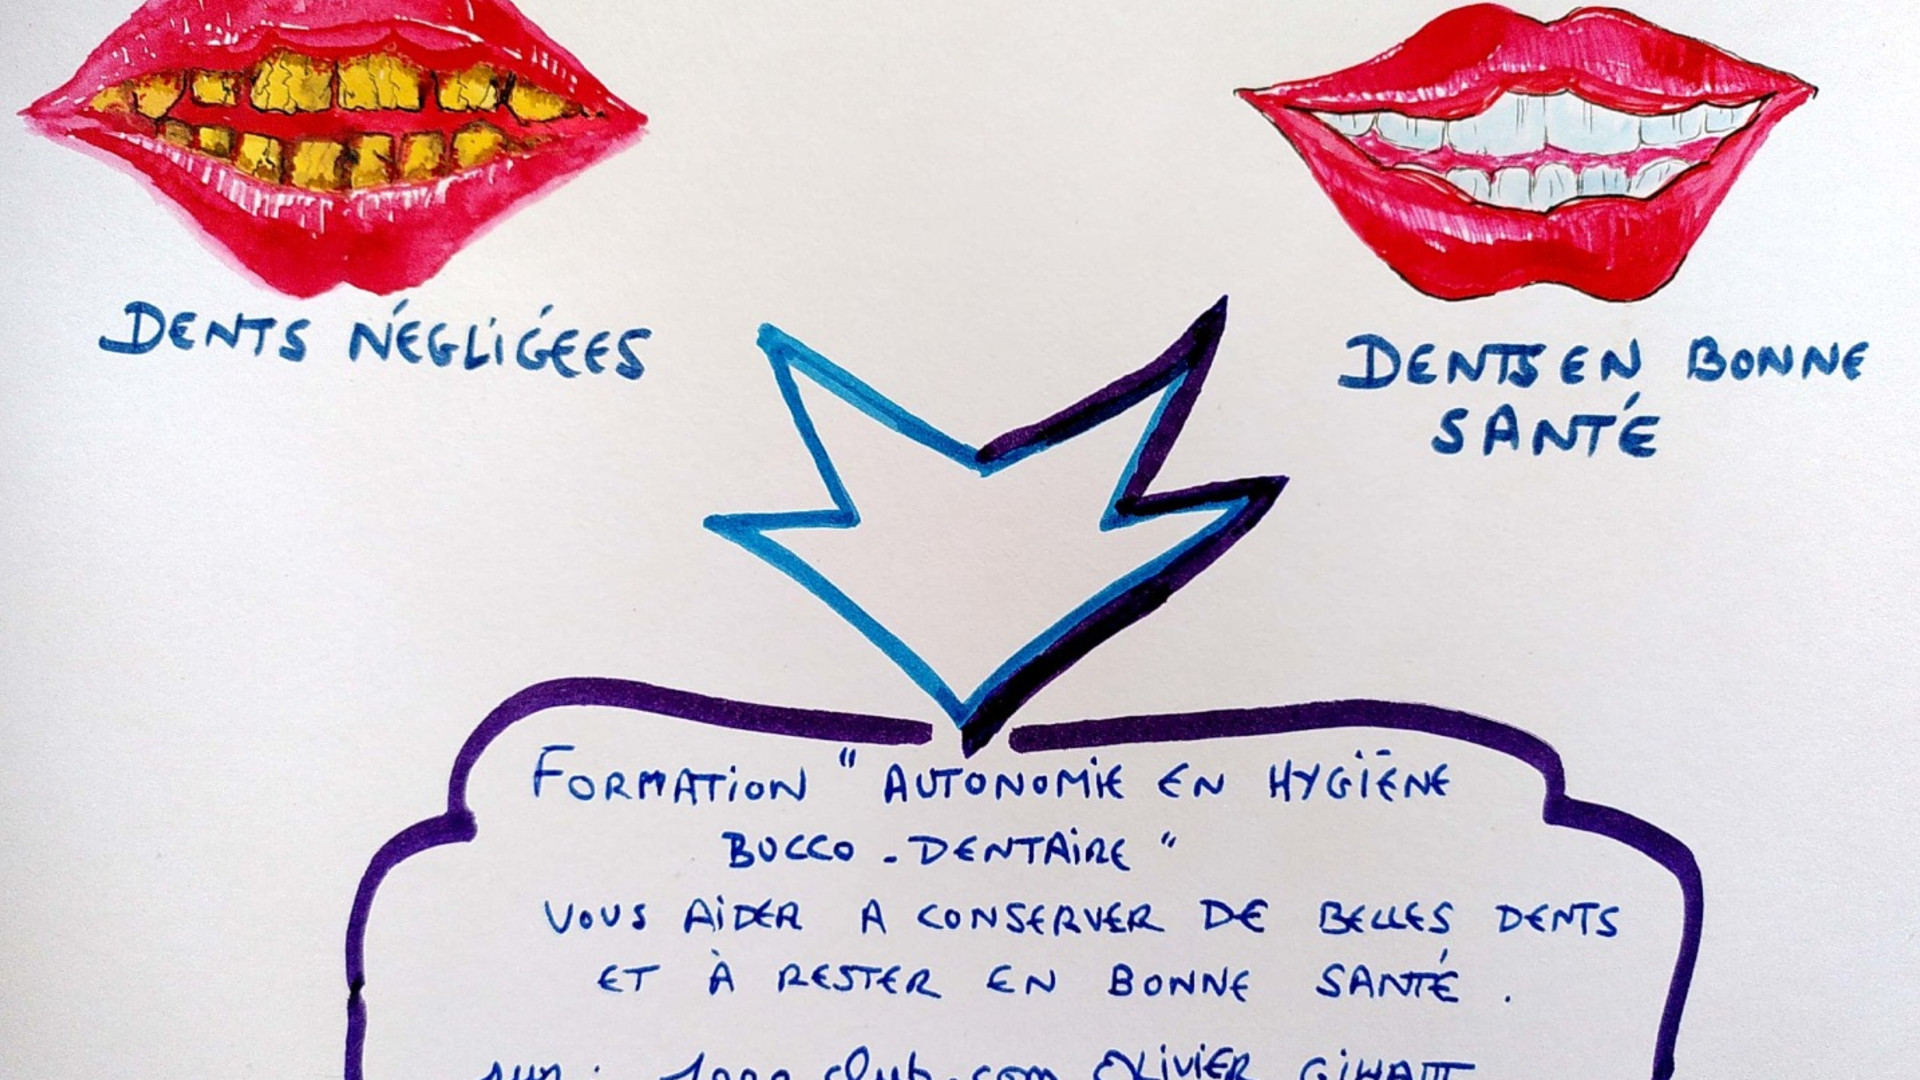 DENTS NÉGLIGÉES
DENTS EN BONNE
SANTÉ
FORMATION " AUTONOMIE EN HYGIÈNE
BUCCO-DENTAIRE "
VOUS AIDER A CONSERVER DE BELLES DENTS
ET À RESTER EN BONNE SANTÉ.
sur : club.com OLIVIER